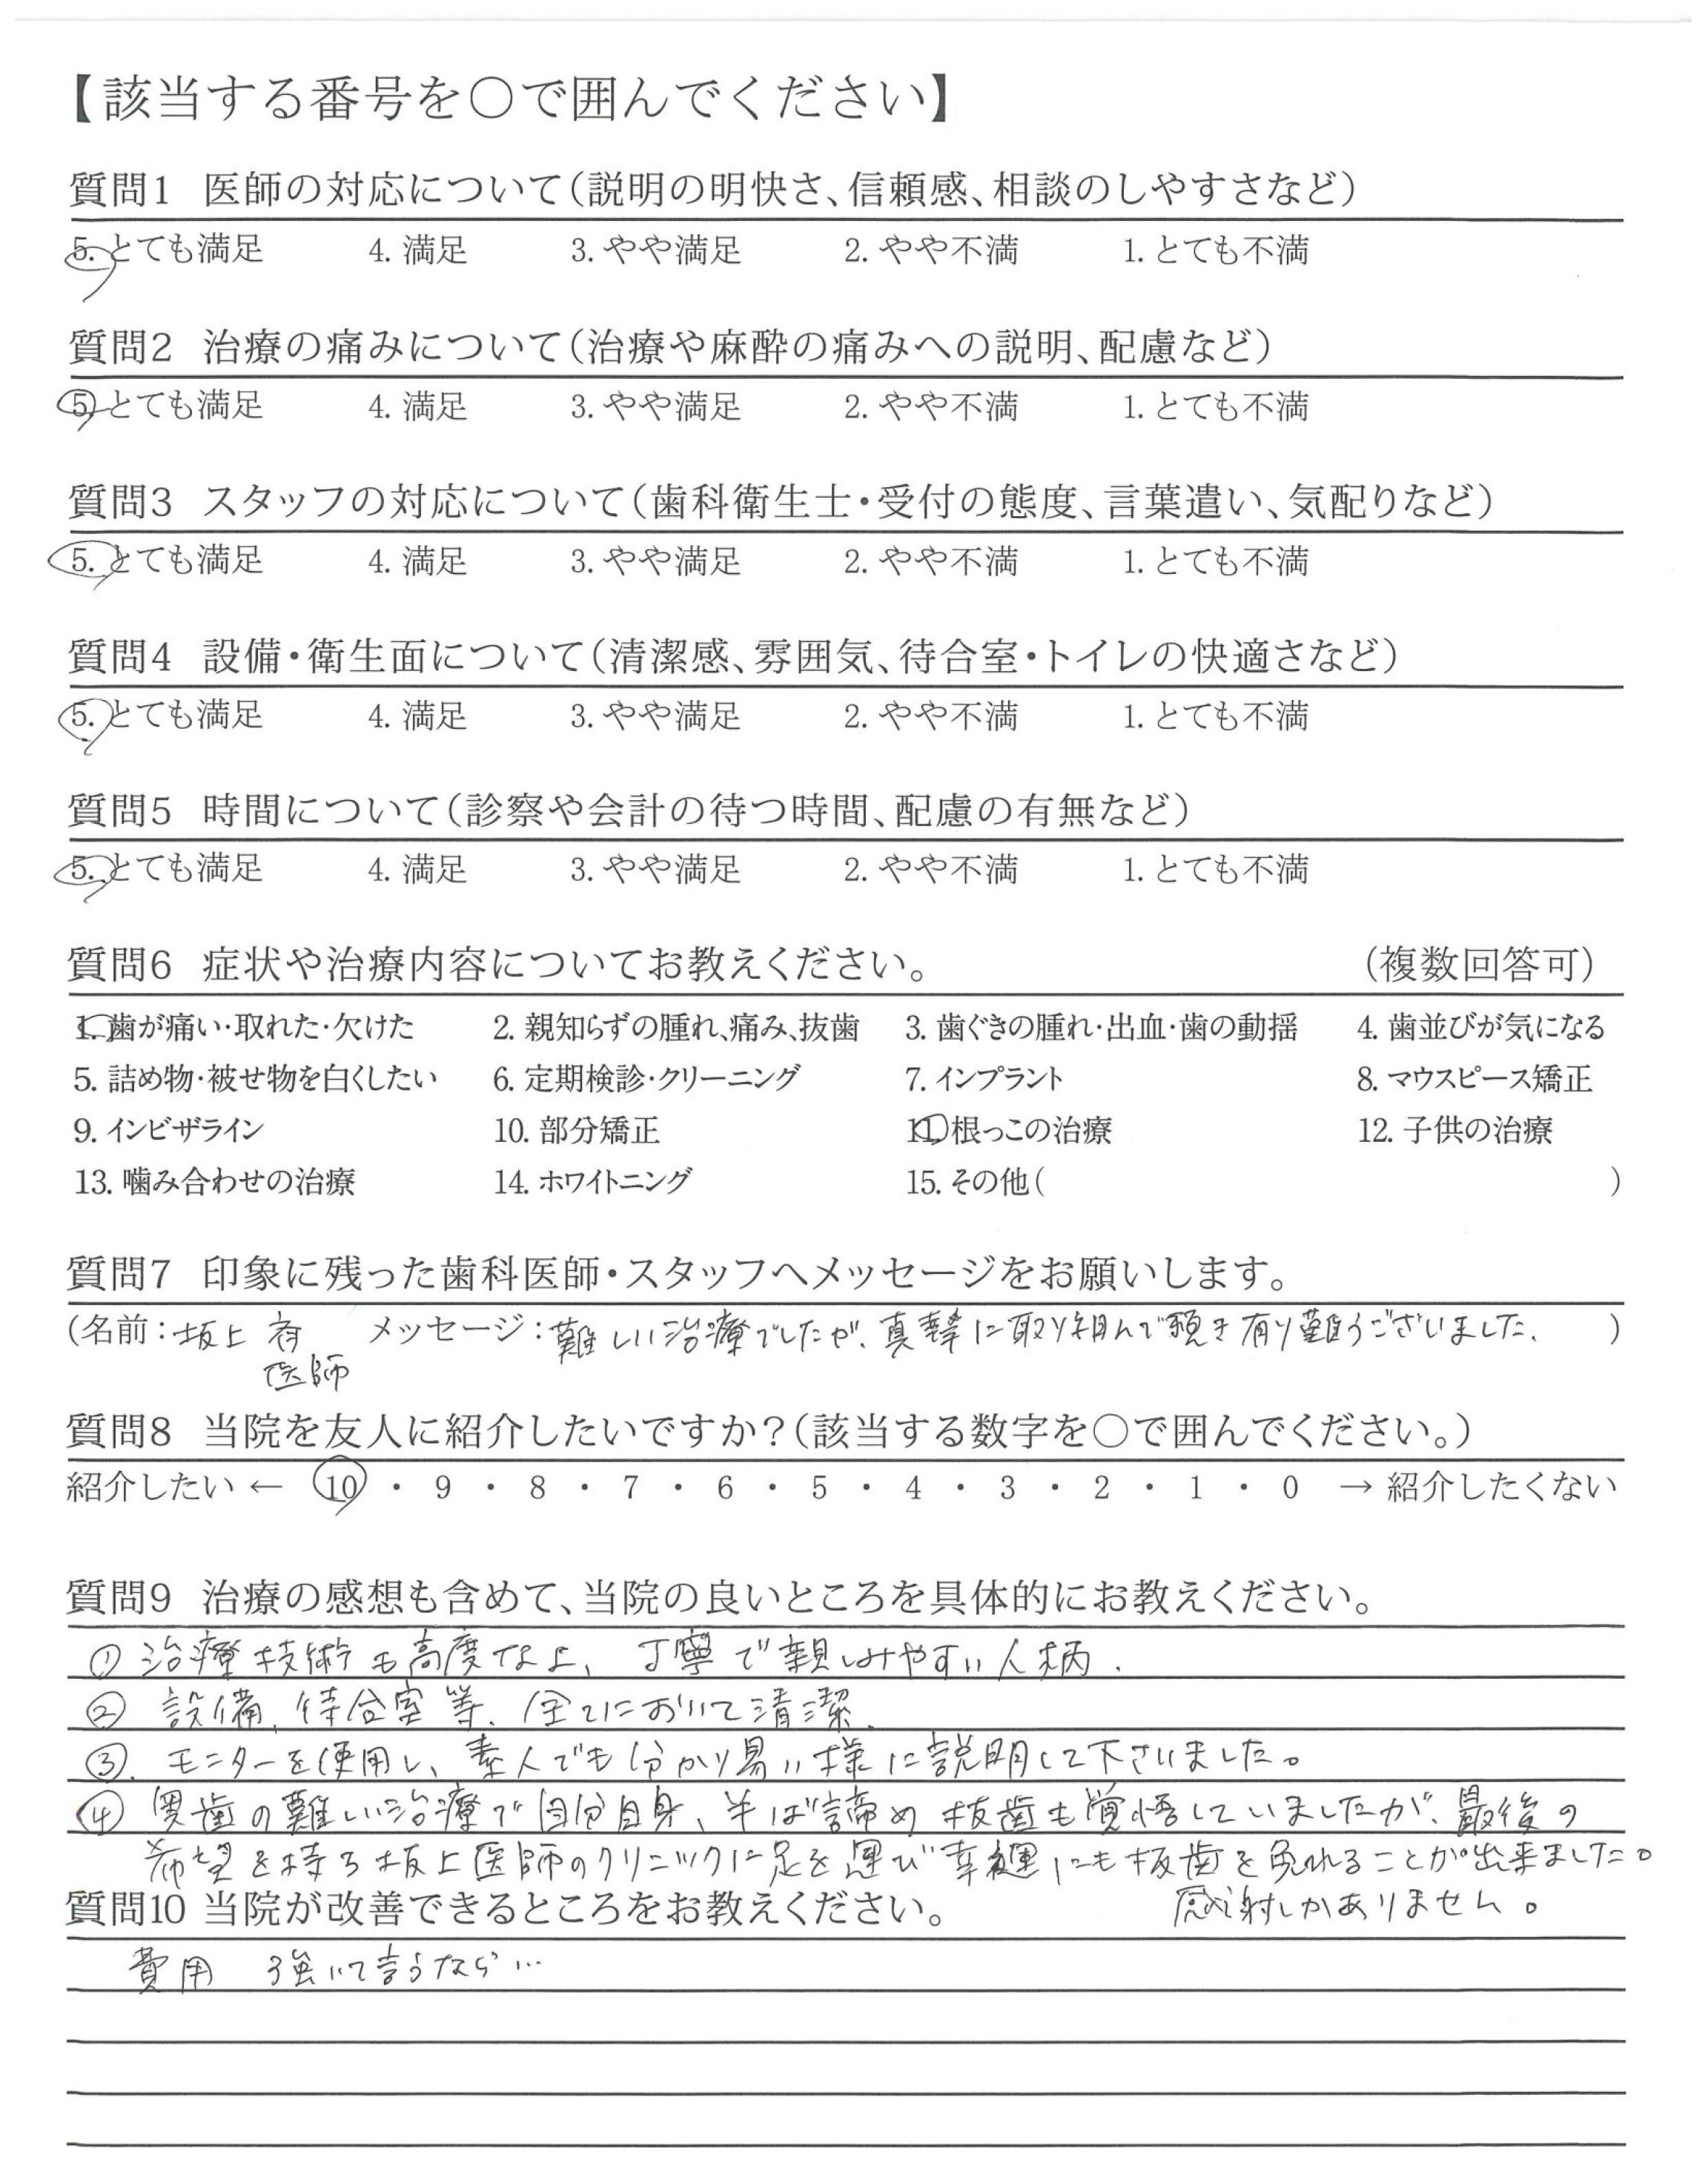 【該当する番号を○で囲んでください】
質問1 医師の対応について(説明の明快さ、信頼感、相談のしやすさなど)
5. とても満足 4. 満足 3. やや満足 2. やや不満 1. とても不満
質問2 治療の痛みについて(治療や麻酔の痛みへの説明、配慮など)
5. とても満足 4. 満足 3. やや満足 2. やや不満 1. とても不満
質問3 スタッフの対応について(歯科衛生士・受付の態度、言葉遣い、気配りなど)
5. とても満足 4. 満足 3. やや満足 2. やや不満 1. とても不満
質問4 設備・衛生面について(清潔感、雰囲気、待合室・トイレの快適さなど)
5. とても満足 4. 満足 3. やや満足 2. やや不満 1. とても不満
質問5 時間について(診察や会計の待つ時間、配慮の有無など)
5. とても満足 4. 満足 3. やや満足 2. やや不満 1. とても不満
質問6 症状や治療内容についてお教えください。 (複数回答可)
1. 歯が痛い・取れた・欠けた 2. 親知らずの腫れ、痛み、抜歯 3. 歯ぐきの腫れ・出血・歯の動揺 4. 歯並びが気になる
5. 詰め物・被せ物を白くしたい 6. 定期検診・クリーニング 7. インプラント 8. マウスピース矯正
9. インビザライン 10. 部分矯正 11. 根っこの治療 12. 子供の治療
13. 噛み合わせの治療 14. ホワイトニング 15. その他( )
質問7 印象に残った歯科医師・スタッフへメッセージをお願いします。
(名前：坂上 メッセージ：難しい治療でしたが、真摯に取り組んで頂き有り難うございました。 )
医師
質問8 当院を友人に紹介したいですか？(該当する数字を○で囲んでください。)
紹介したい ← 10 ・ 9 ・ 8 ・ 7 ・ 6 ・ 5 ・ 4 ・ 3 ・ 2 ・ 1 ・ 0 → 紹介したくない
質問9 治療の感想も含めて、当院の良いところを具体的にお教えください。
① 治療技術も高度な上、丁寧で親しみやすい人柄.
② 設備、待合室等、全てにおいて清潔.
③. モニターを使用し、素人でも分かり易い様に説明して下さいました。
④ 奥歯の難しい治療で自分自身、半ば諦め抜歯も覚悟していましたが、最後の
希望を持ち坂上医師のクリニックに足を運び幸運にも抜歯を免れることが出来ました。
感謝しかありません。
質問10 当院が改善できるところをお教えください。
費用 強いて言うなら…